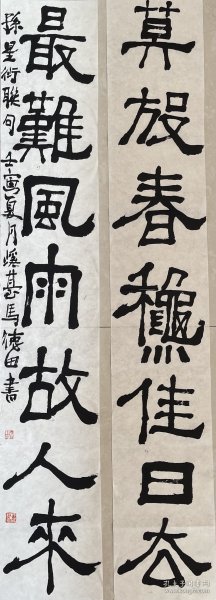 莫放春穐佳日去
最難風雨故人來
孫星衍聯句 壬寅夏月 溪甚馬德田書